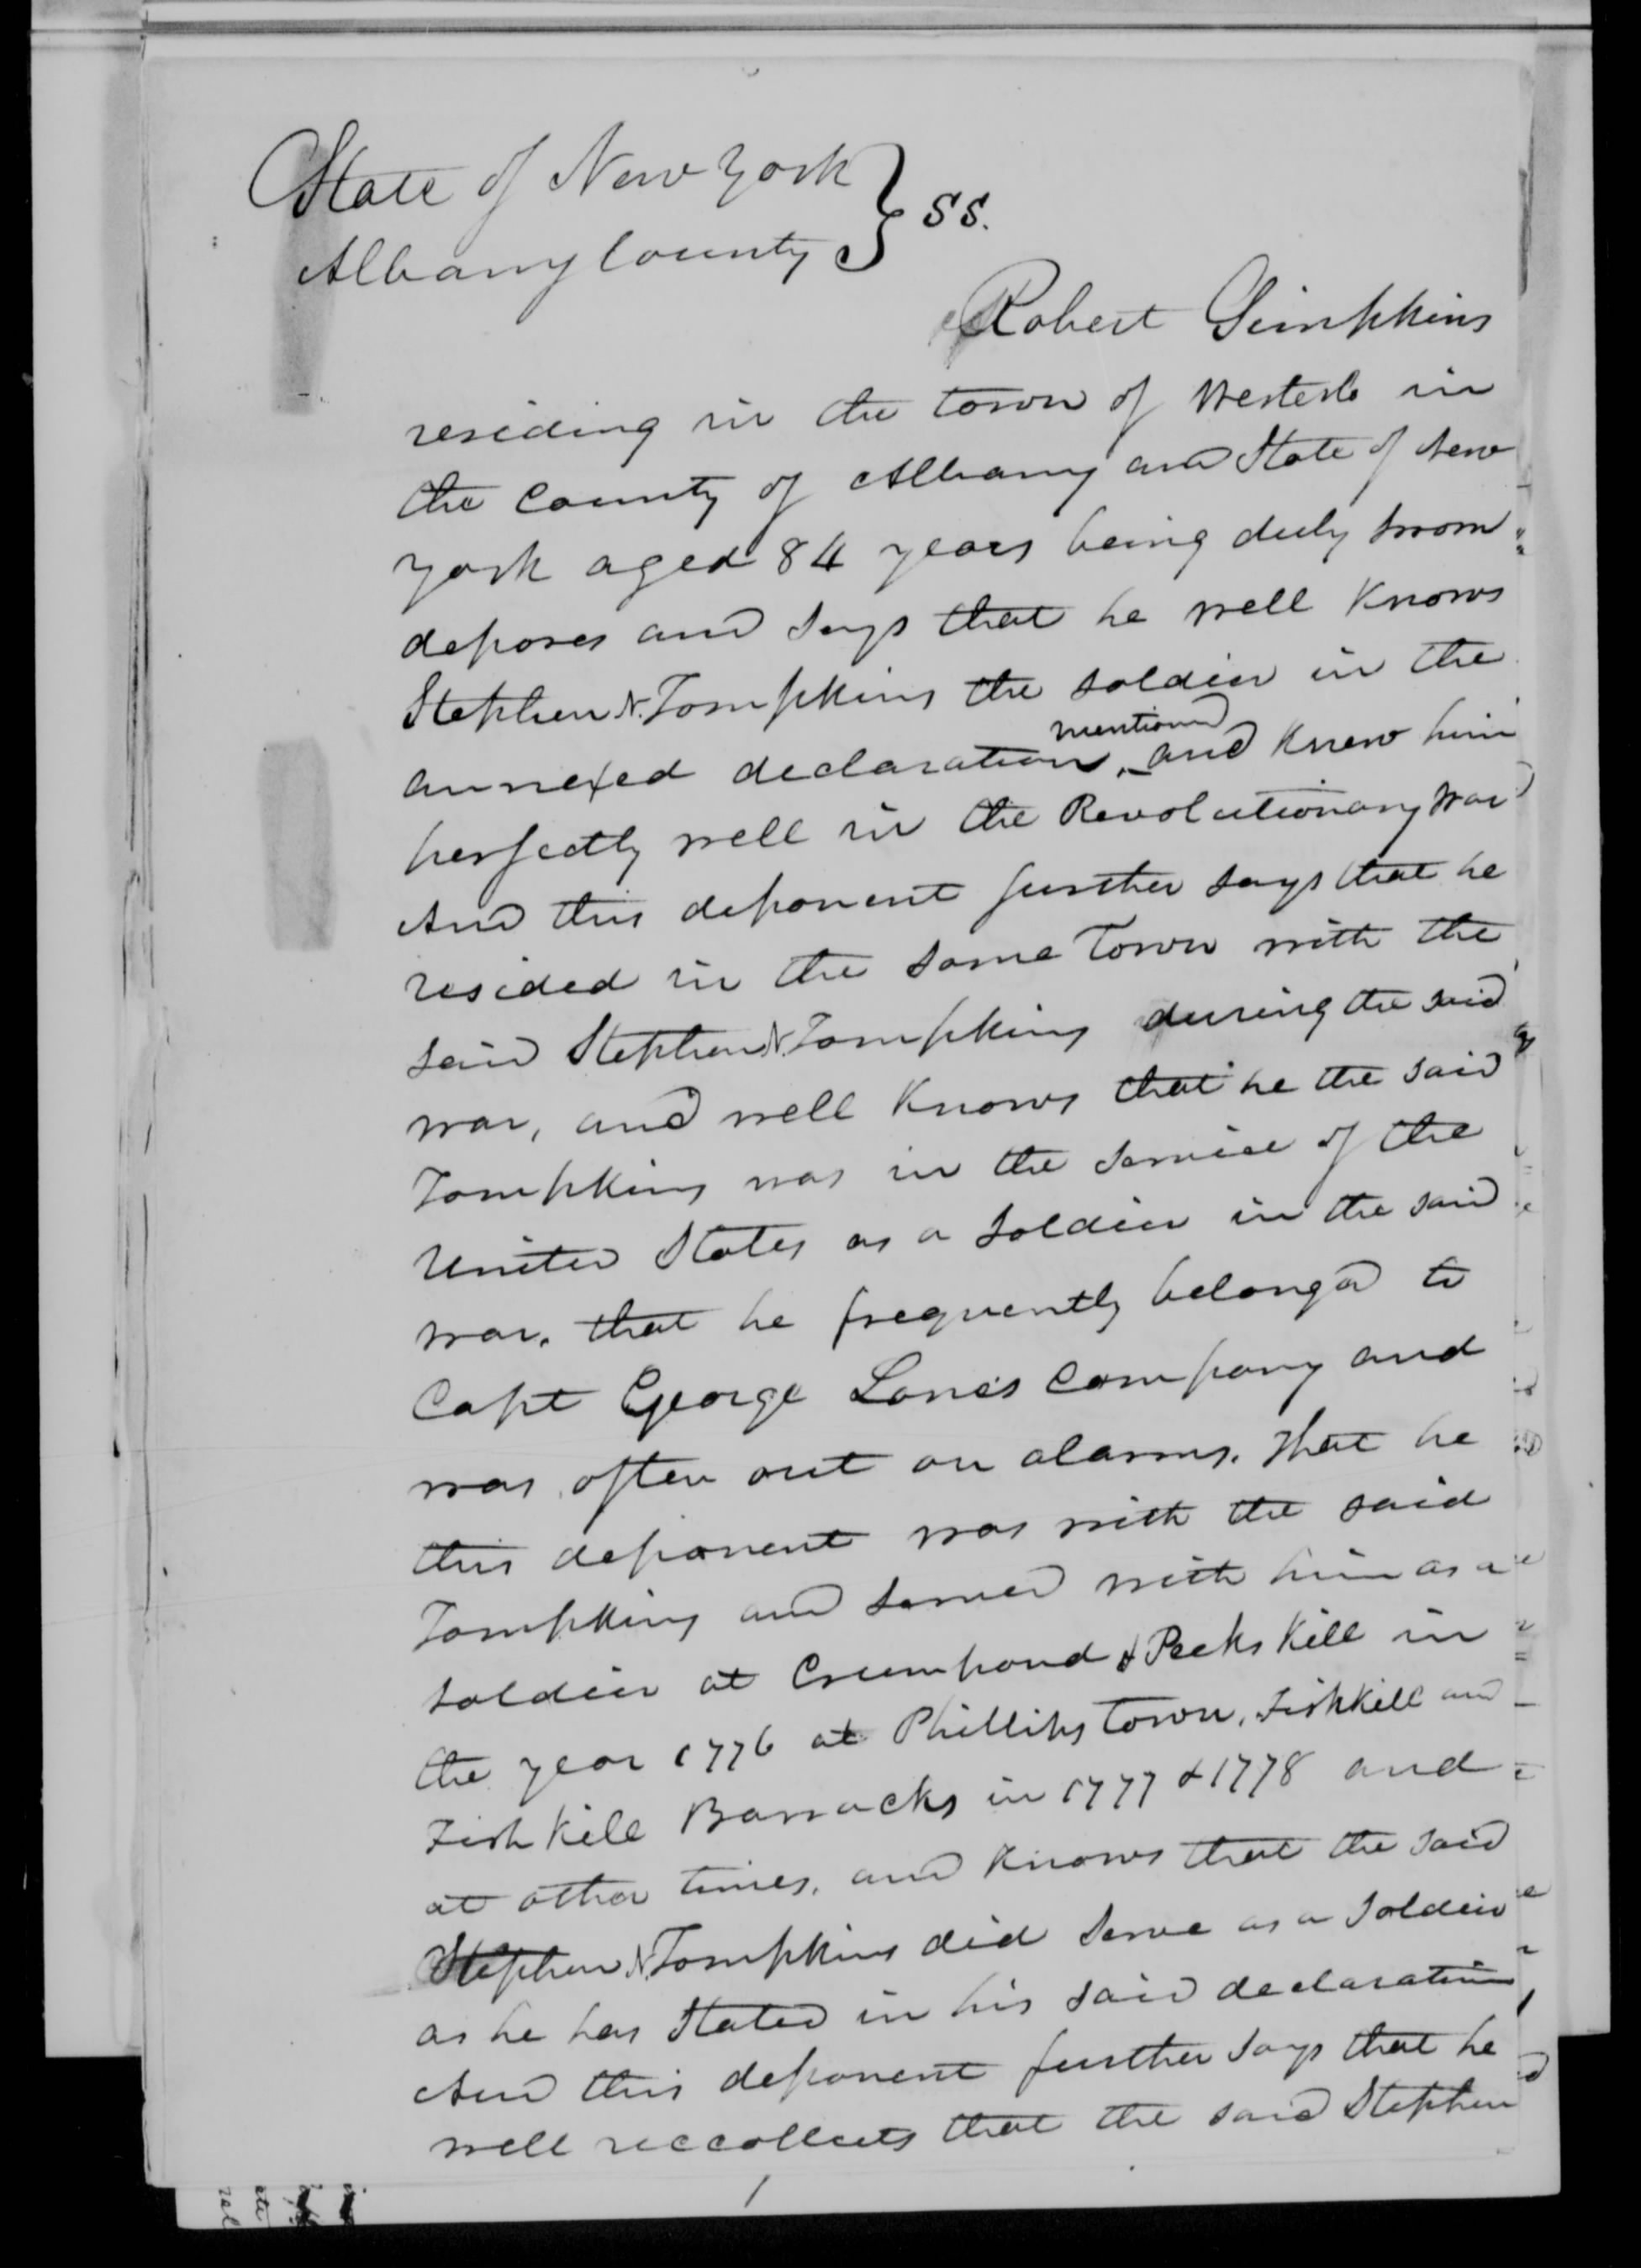 State of New York
Albany County } SS.
Robert Simpkins
residing in the town of Westerlo in
the County of Albany and State of New
York aged 84 years being duly sworn
deposes and says that he well knows
Stephen N. Tompkins the soldier in the
mentioned
annexed declaration, and knew him
perfectly well in the Revolutionary War
And this deponent further says that he
resided in the same Town with the
said Stephen N. Tompkins during the said
war, and well knows that he the said
Tompkins was in the service of the
United States as a soldier in the said
war. that he frequently belonged to
Capt George Lane's Company and
was often out on alarms. That he
this deponent was with the said
Tompkins and served with him as a
soldier at Crumpond & Peeks Kill in
the year 1776 at Phillips Town, Fishkill and
Fish Kill Barracks in 1777 & 1778 and
at other times, and knows that the said
Stephen N. Tompkins did serve as a soldier
as he has stated in his said declaration
And this deponent further says that he
well reccollects that the said Stephen